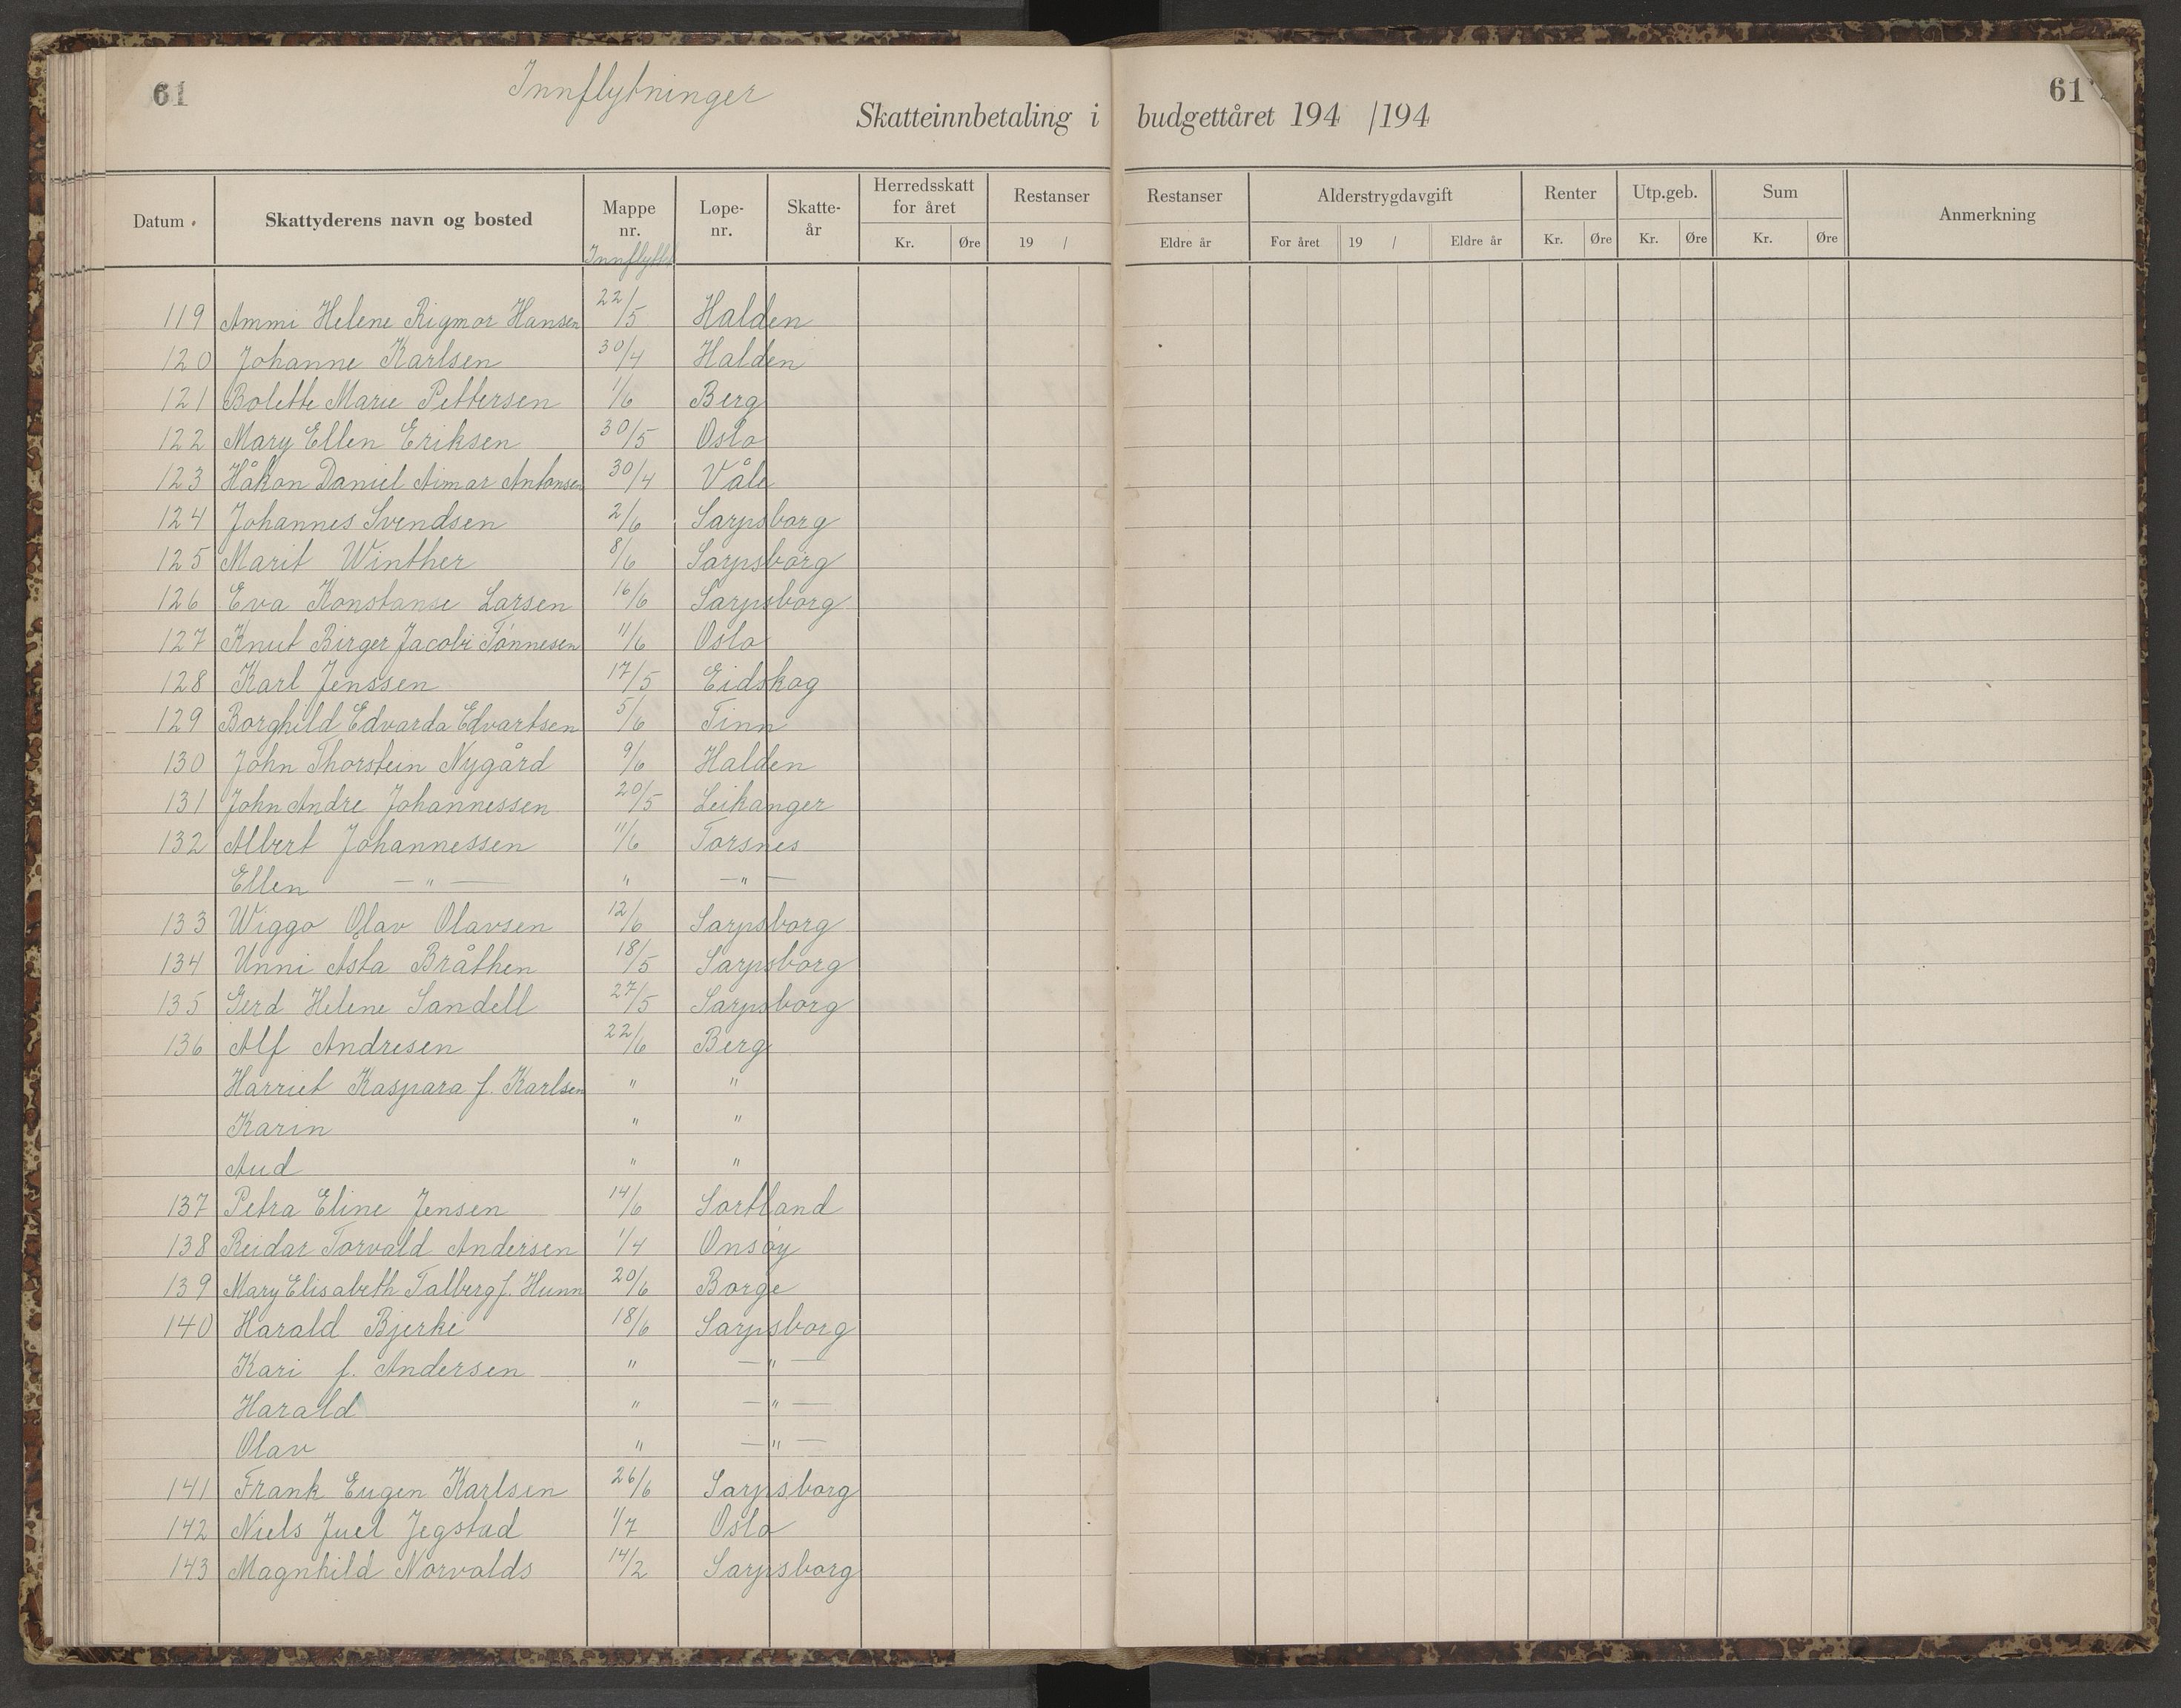 61
Innflytninger
61
Skatteinnbetaling i budgettåret 194 /194
Datum. Skattyderens navn og bosted Mappe nr. Løpe-nr. Skatte-år Herredsskatt for året Restanser Restanser Alderstrygdavgift Renter Utp.geb. Sum Anmerkning
Innflyttet Kr. Øre 19 / Eldre år For året 19 / Eldre år Kr. Øre Kr. Øre Kr. Øre
119 Ammi Helene Rigmor Hansen 22/5 Halden
120 Johanne Karlsen 30/4 Halden
121 Bolette Marie Pettersen 1/6 Berg
122 Mary Ellen Eriksen 30/5 Oslo
123 Håkon Daniel Aimar Antonsen 30/4 Våle
124 Johannes Svendsen 2/6 Sarpsborg
125 Marit Winther 8/6 Sarpsborg
126 Eva Konstanse Larsen 16/6 Sarpsborg
127 Knut Birger Jacobi Tønnesen 11/6 Oslo
128 Karl Jenssen 17/5 Eidskog
129 Borghild Edvarda Edvartsen 5/6 Tinn
130 John Thorstein Nygård 9/6 Halden
131 John Andre Johannessen 20/5 Leikanger
132 Albert Johannessen 11/6 Torsnes
Ellen —"— " —"—
133 Wiggo Olav Olavsen 12/6 Sarpsborg
134 Unni Asta Bråthen 18/5 Sarpsborg
135 Gerd Helene Sandell 27/5 Sarpsborg
136 Alf Andresen 22/6 Berg
Harriet Kaspara f. Karlsen " "
Karin " "
Aud " "
137 Petra Eline Jensen 14/6 Sortland
138 Reidar Torvald Andersen 1/4 Onsøy
139 Mary Elisabeth Talberg f. Hunn 20/6 Borge
140 Harald Bjerke 18/6 Sarpsborg
Kari f. Andersen " —"—
Harald " —"—
Olav " —"—
141 Frank Eugen Karlsen 26/6 Sarpsborg
142 Niels Juel Jegstad 1/7 Oslo
143 Magnhild Norvalds 14/2 Sarpsborg